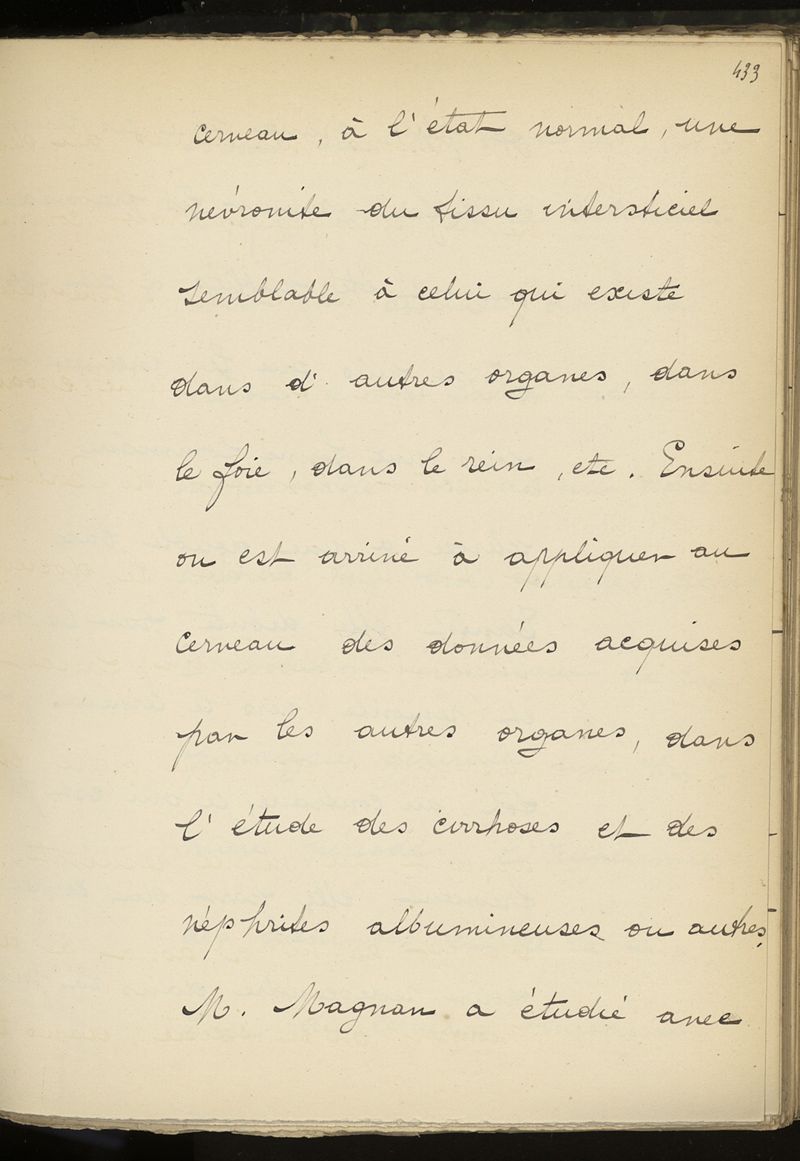 433
cerveau, à l'état normal, une
névronite du tissu intersticiel
semblable à celui qui existe
dans d'autres organes, dans
le foie, dans le rein, etc. Ensuite
on est arrivé à appliquer au
cerveau des données acquises
par les autres organes, dans
l'étude des cirrhoses et des
néphrites albumineuses ou autres.
M. Magnan a étudié avec